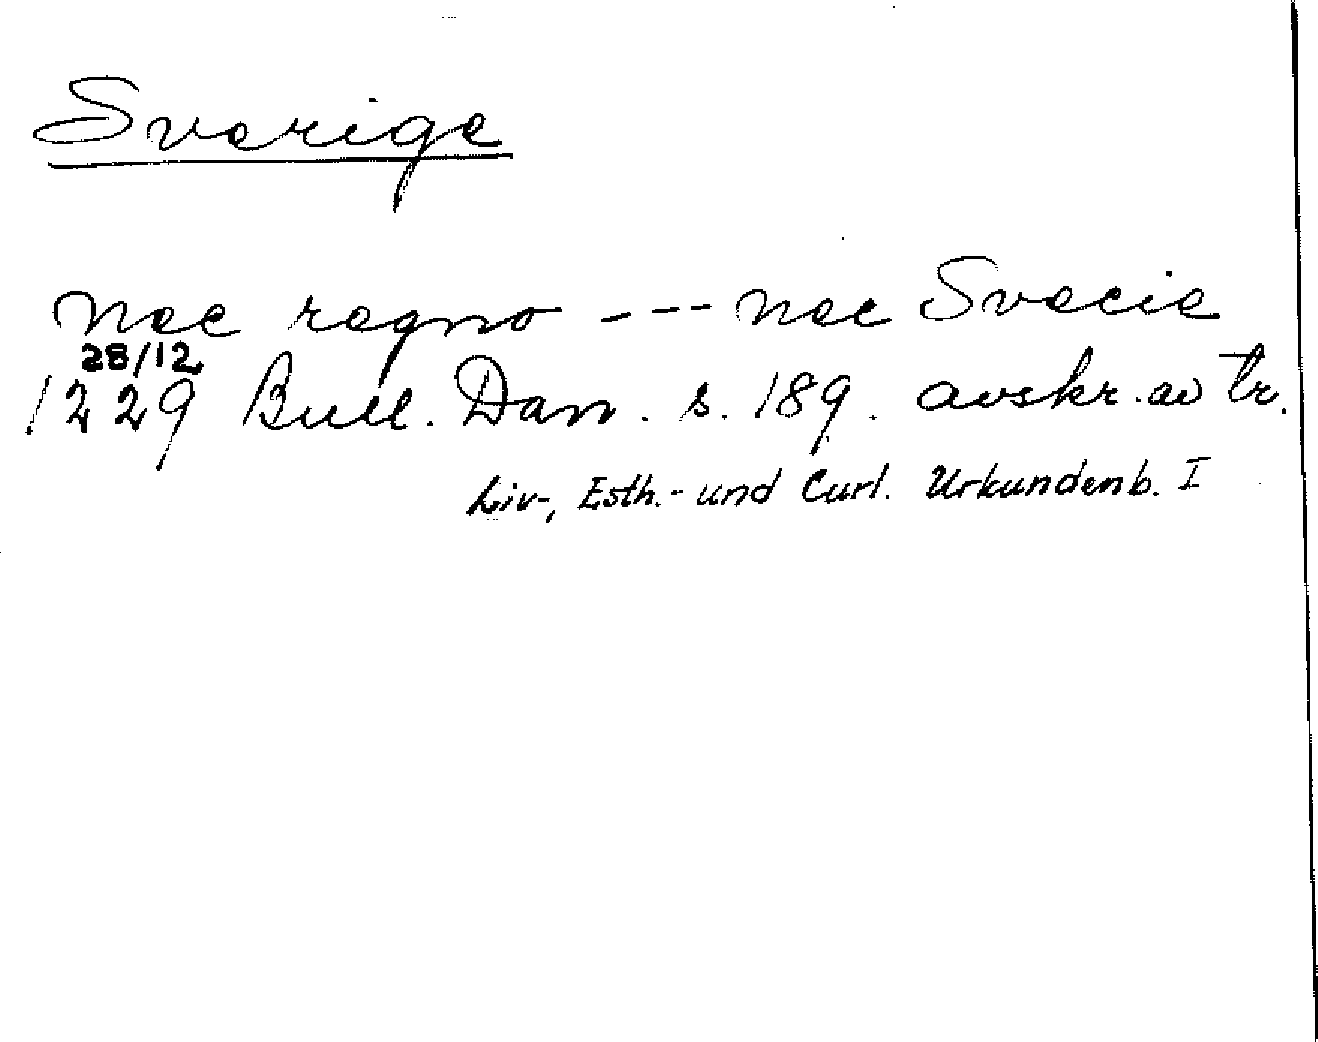 Sverige
nec regno --- nec Svecie
28/12
1229 Bull. Dan. s. 189. avskr. av tr.
Liv-, Esth.- und Curl. Urkundenb. I